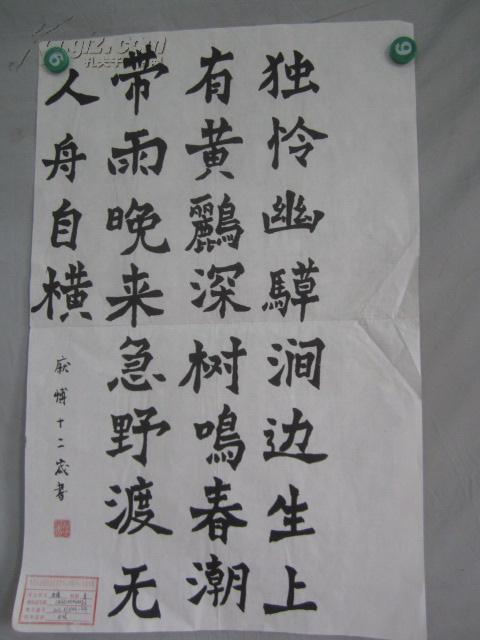 独怜幽騲涧边生上
有黄鸝深树鳴春潮
带雨晚来急野渡无
人舟自横
十二岁書